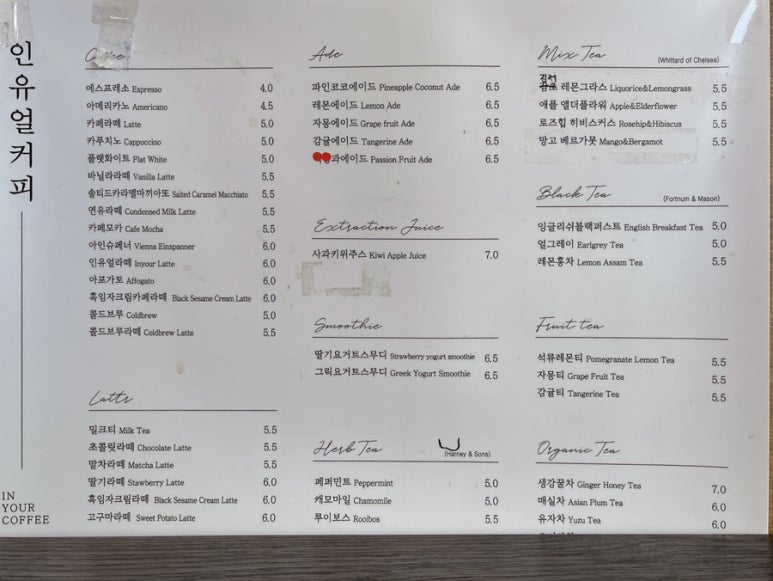 인유얼커피
IN
YOUR
COFFEE
Coffee
에스프레소 Espresso 4.0
아메리카노 Americano 4.5
카페라떼 Latte 5.0
카푸치노 Cappuccino 5.0
플랫화이트 Flat White 5.0
바닐라라떼 Vanilla Latte 5.5
솔티드카라멜마끼아또 Salted Caramel Macchiato 5.5
연유라떼 Condensed Milk Latte 5.5
카페모카 Cafe Mocha 5.5
아인슈페너 Vienna Einspanner 6.0
인유얼라떼 Inyour Latte 6.0
아포가토 Affogato 6.0
흑임자크림카페라떼 Black Sesame Cream Latte 6.0
콜드브루 Coldbrew 5.0
콜드브루라떼 Coldbrew Latte 5.5
Latte
밀크티 Milk Tea 5.5
초콜릿라떼 Chocolate Latte 5.5
말차라떼 Matcha Latte 5.5
딸기라떼 Stawberry Latte 6.0
흑임자크림라떼 Black Sesame Cream Latte 6.0
고구마라떼 Sweet Potato Latte 6.0
Ade
파인코코에이드 Pineapple Coconut Ade 6.5
레몬에이드 Lemon Ade 6.5
자몽에이드 Grape fruit Ade 6.5
감귤에이드 Tangerine Ade 6.5
과에이드 Passion Fruit Ade 6.5
Extraction Juice
사과키위주스 Kiwi Apple Juice 7.0
Smoothie
딸기요거트스무디 Strawberry yogurt smoothie 6.5
그릭요거트스무디 Greek Yogurt Smoothie 6.5
Herb Tea (Harney & Sons)
페퍼민트 Peppermint 5.0
캐모마일 Chamomile 5.0
루이보스 Rooibos 5.5
Mix Tea (Whittard of Chelsea)
레몬그라스 Liquorice&Lemongrass 5.5
애플 앨더플라워 Apple&Elderflower 5.5
로즈힙 히비스커스 Rosehip&Hibiscus 5.5
망고 베르가못 Mango&Bergamot 5.5
Black Tea (Fortnum & Mason)
잉글리쉬블랙퍼스트 English Breakfast Tea 5.0
얼그레이 Earlgrey Tea 5.0
레몬홍차 Lemon Assam Tea 5.5
Fruit tea
석류레몬티 Pomegranate Lemon Tea 5.5
자몽티 Grape Fruit Tea 5.5
감귤티 Tangerine Tea 5.5
Organic Tea
생강꿀차 Ginger Honey Tea 7.0
매실차 Asian Plum Tea 6.0
유자차 Yuzu Tea 6.0